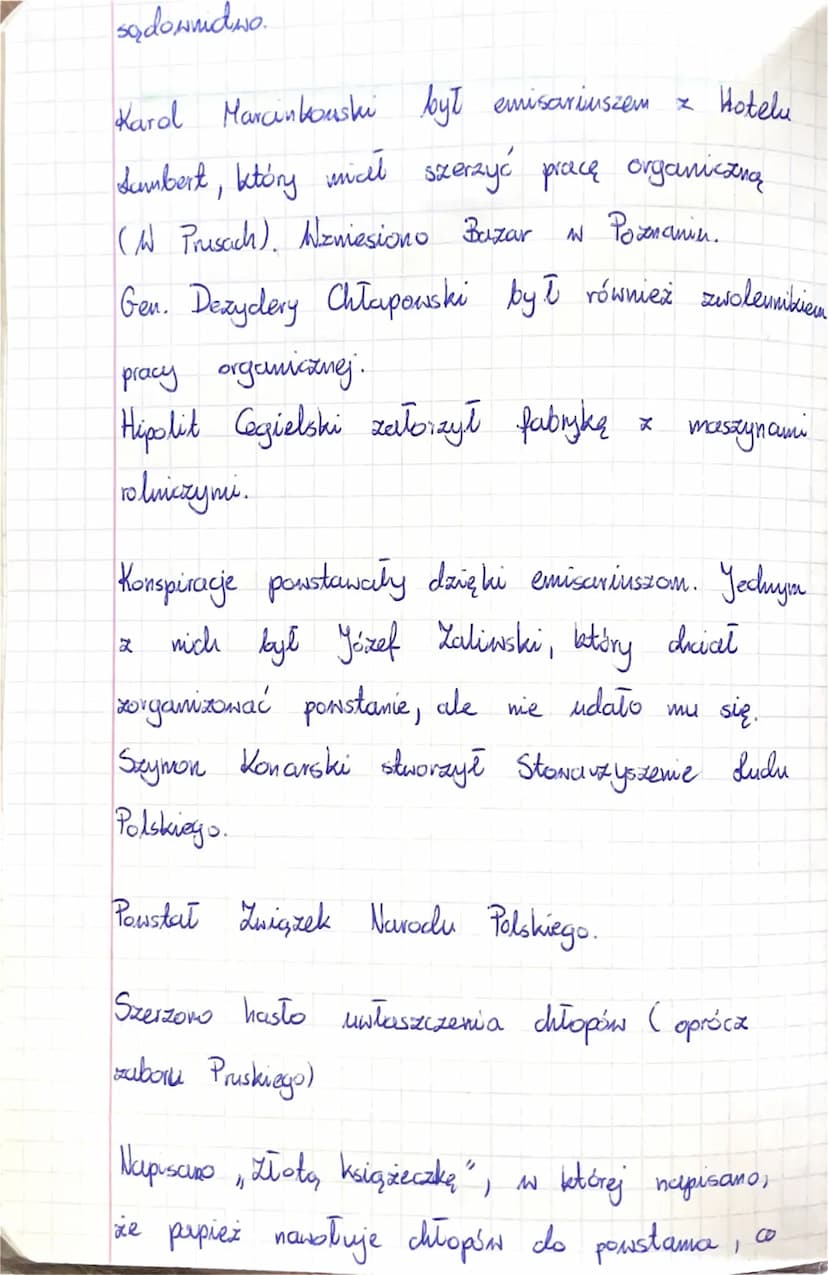 sądownictwo.
Karol Marcinkowski był emisariuszem z Hotelu
Lambert, który miał szerzyć pracę organiczną
(W Prusach). Wzniesiono Bazar w Poznaniu.
Gen. Dezydery Chłapowski był również zwolennikiem
pracy organicznej.
Hipolit Cegielski założył fabrykę z maszynami
rolniczymi.
Konspiracje powstawały dzięki emisariuszom. Jednym
z nich był Józef Zaliwski, który chciał
zorganizować powstanie, ale nie udało mu się.
Szymon Konarski stworzył Stowarzyszenie Ludu
Polskiego.
Powstał Związek Narodu Polskiego.
Szerzono hasło uwłaszczenia chłopów (oprócz
zaboru Pruskiego)
Napisano „Złotą książeczkę", w której napisano,
że papież nawołuje chłopów do powstania, co